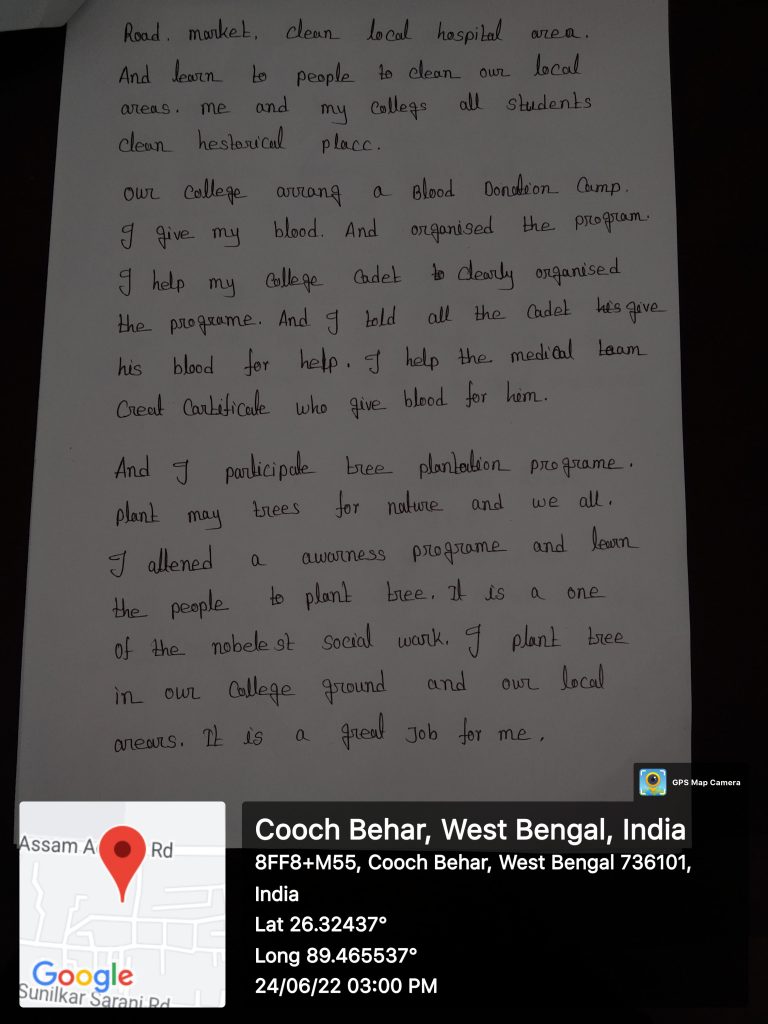 Road. market, clean local hospital area.
And learn to people to clean our local
areas. me and my collegs all students
clean hestorical placc.
our college arrang a Blood Donation Camp.
I give my blood. And organised the program.
I help my college cadet to clearly organised
the programe. And I told all the cadet his give
his blood for help. I help the medical team
Creat Cartificate who give blood for him.
And I participate tree plantation programe.
plant may trees for nature and we all.
I attened a awarness programe and learn
the people to plant tree. It is a one
of the nobelest social work. I plant tree
in our college ground and our local
arears. It is a great Job for me.
GPS Map Camera
Cooch Behar, West Bengal, India
8FF8+M55, Cooch Behar, West Bengal 736101,
India
Lat 26.32437°
Long 89.465537°
24/06/22 03:00 PM
Assam A Rd
Google
Sunilkar Sarani Rd